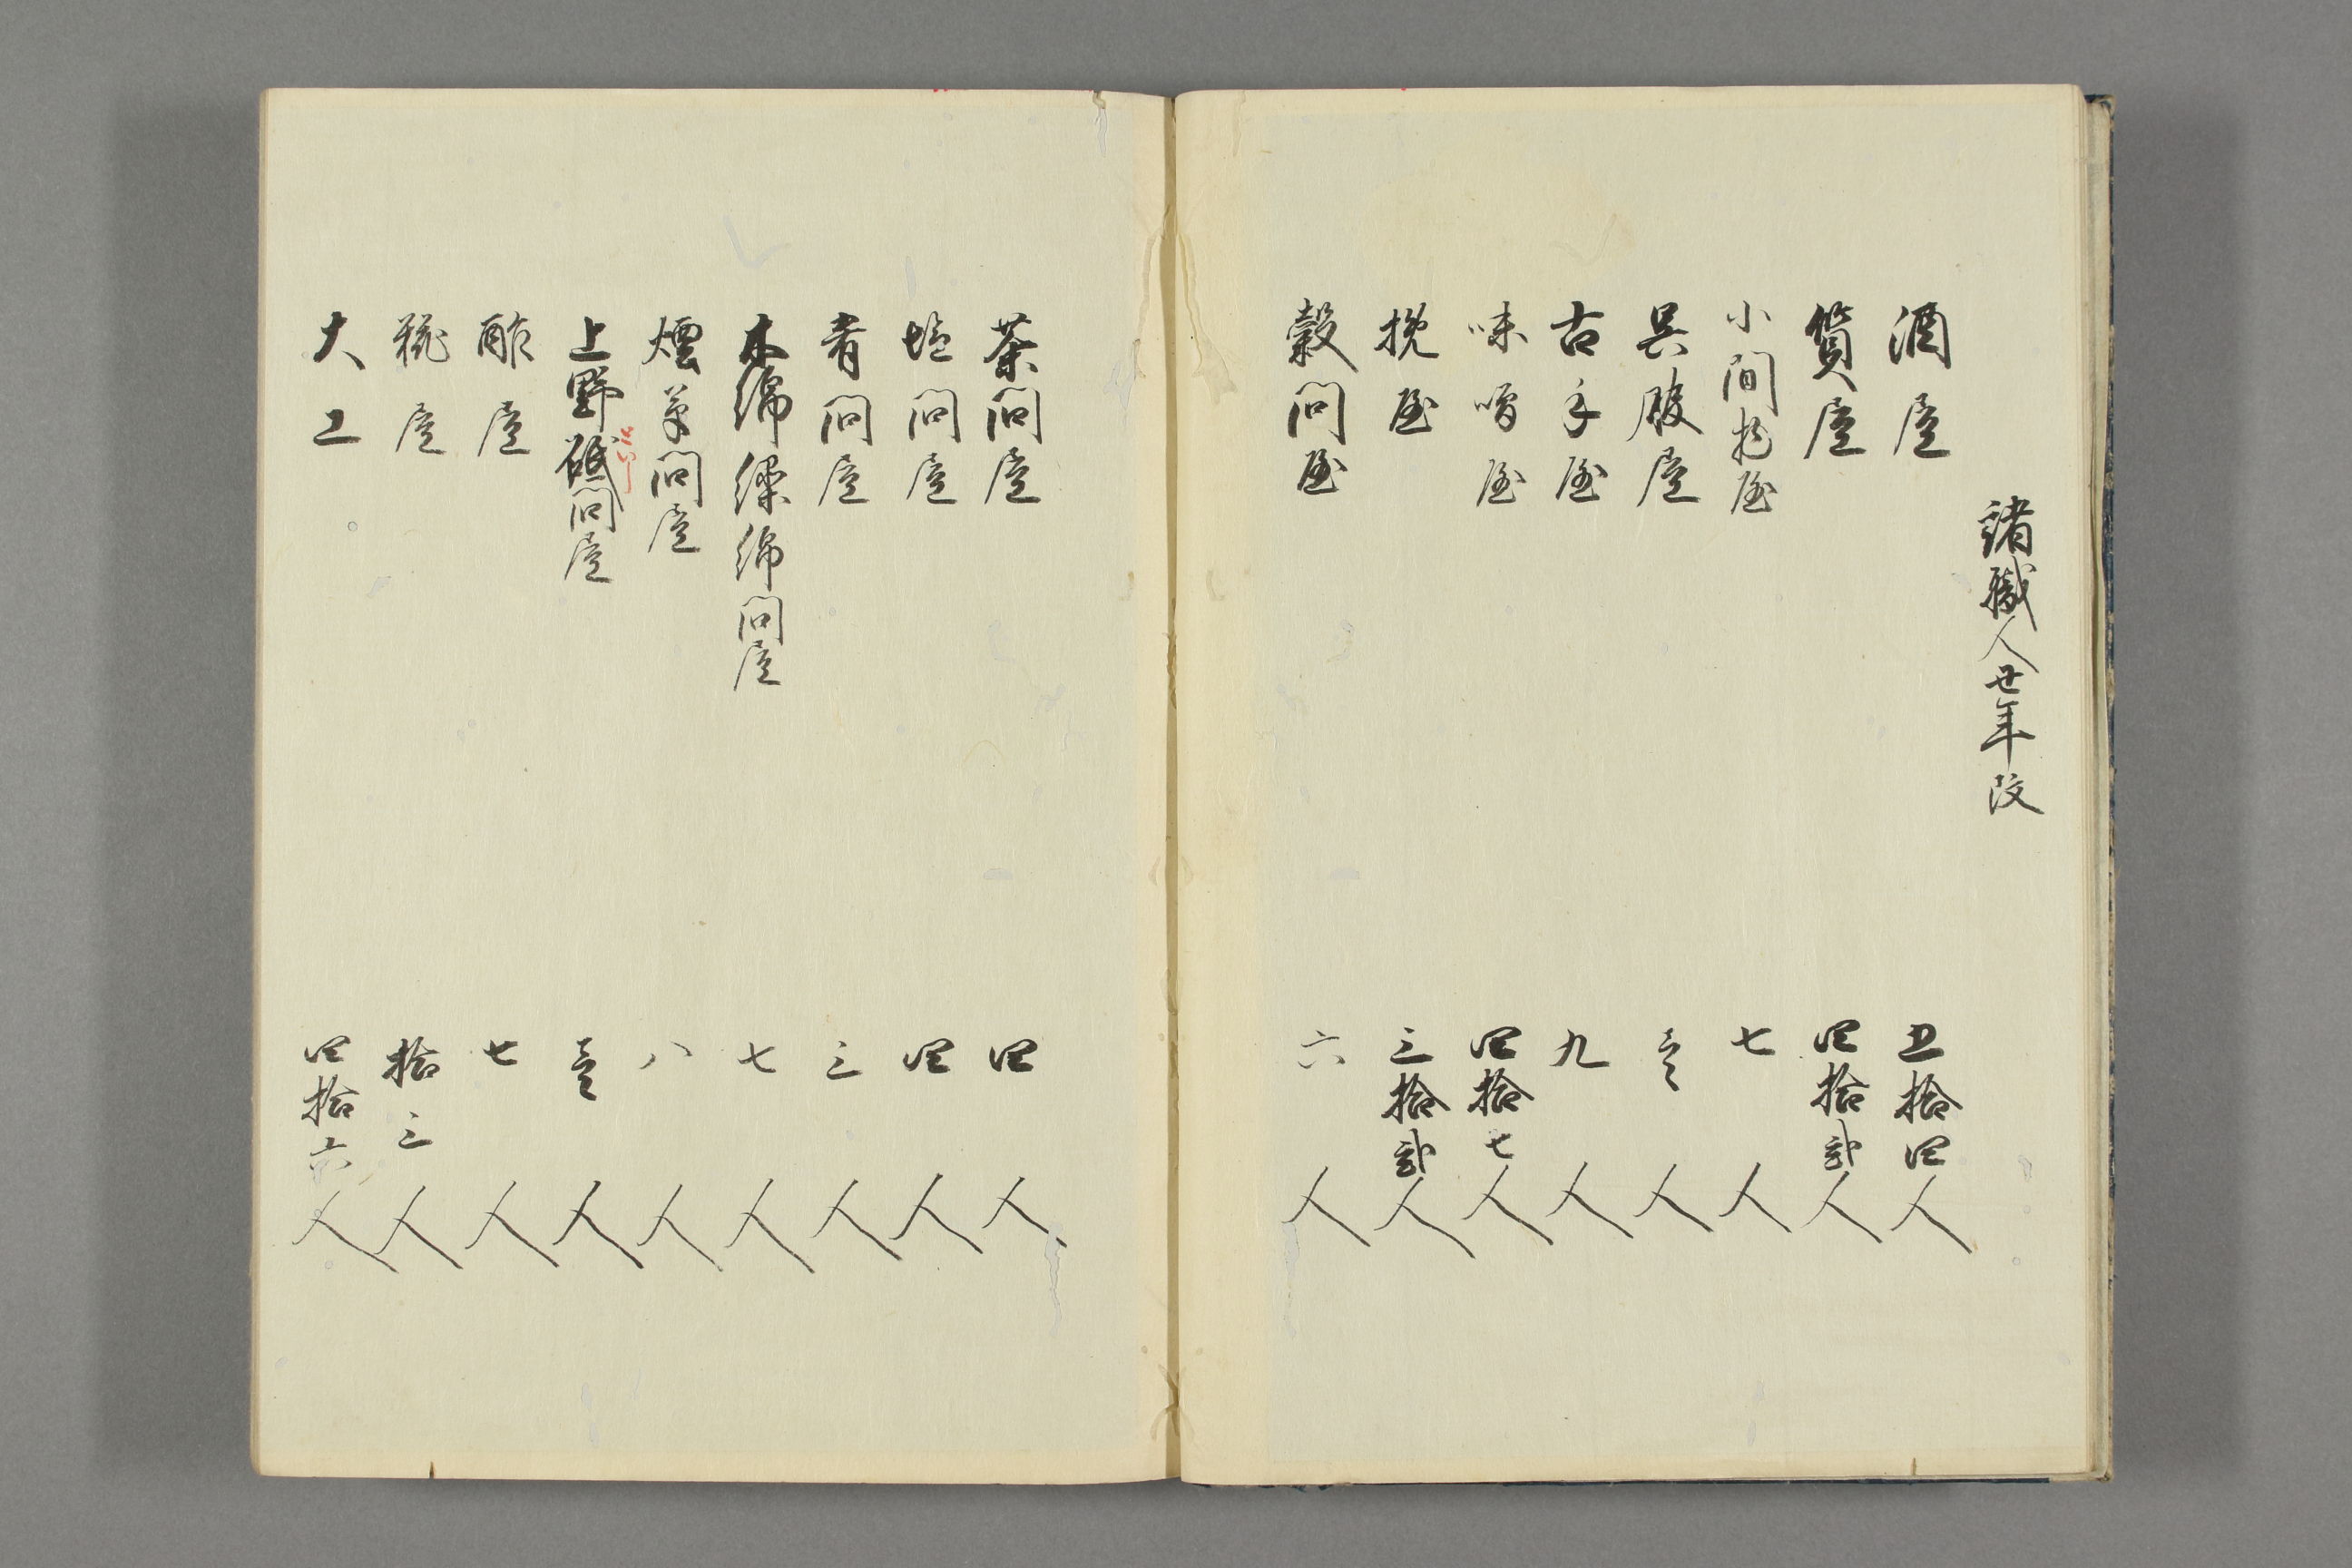 諸職人廿年改
酒屋 五拾四人
質屋 四拾弐人
小間物屋 七人
呉服屋 壱人
古手屋 九人
味噌屋 四拾七人
挽屋 三拾弐人
穀問屋 六人
茶問屋 四人
塩問屋 四人
肴問屋 三人
木綿繰綿問屋 七人
煙草問屋 八人
といし
上野砥問屋 壱人
酢屋 七人
屋 拾三人
大工 四拾六人